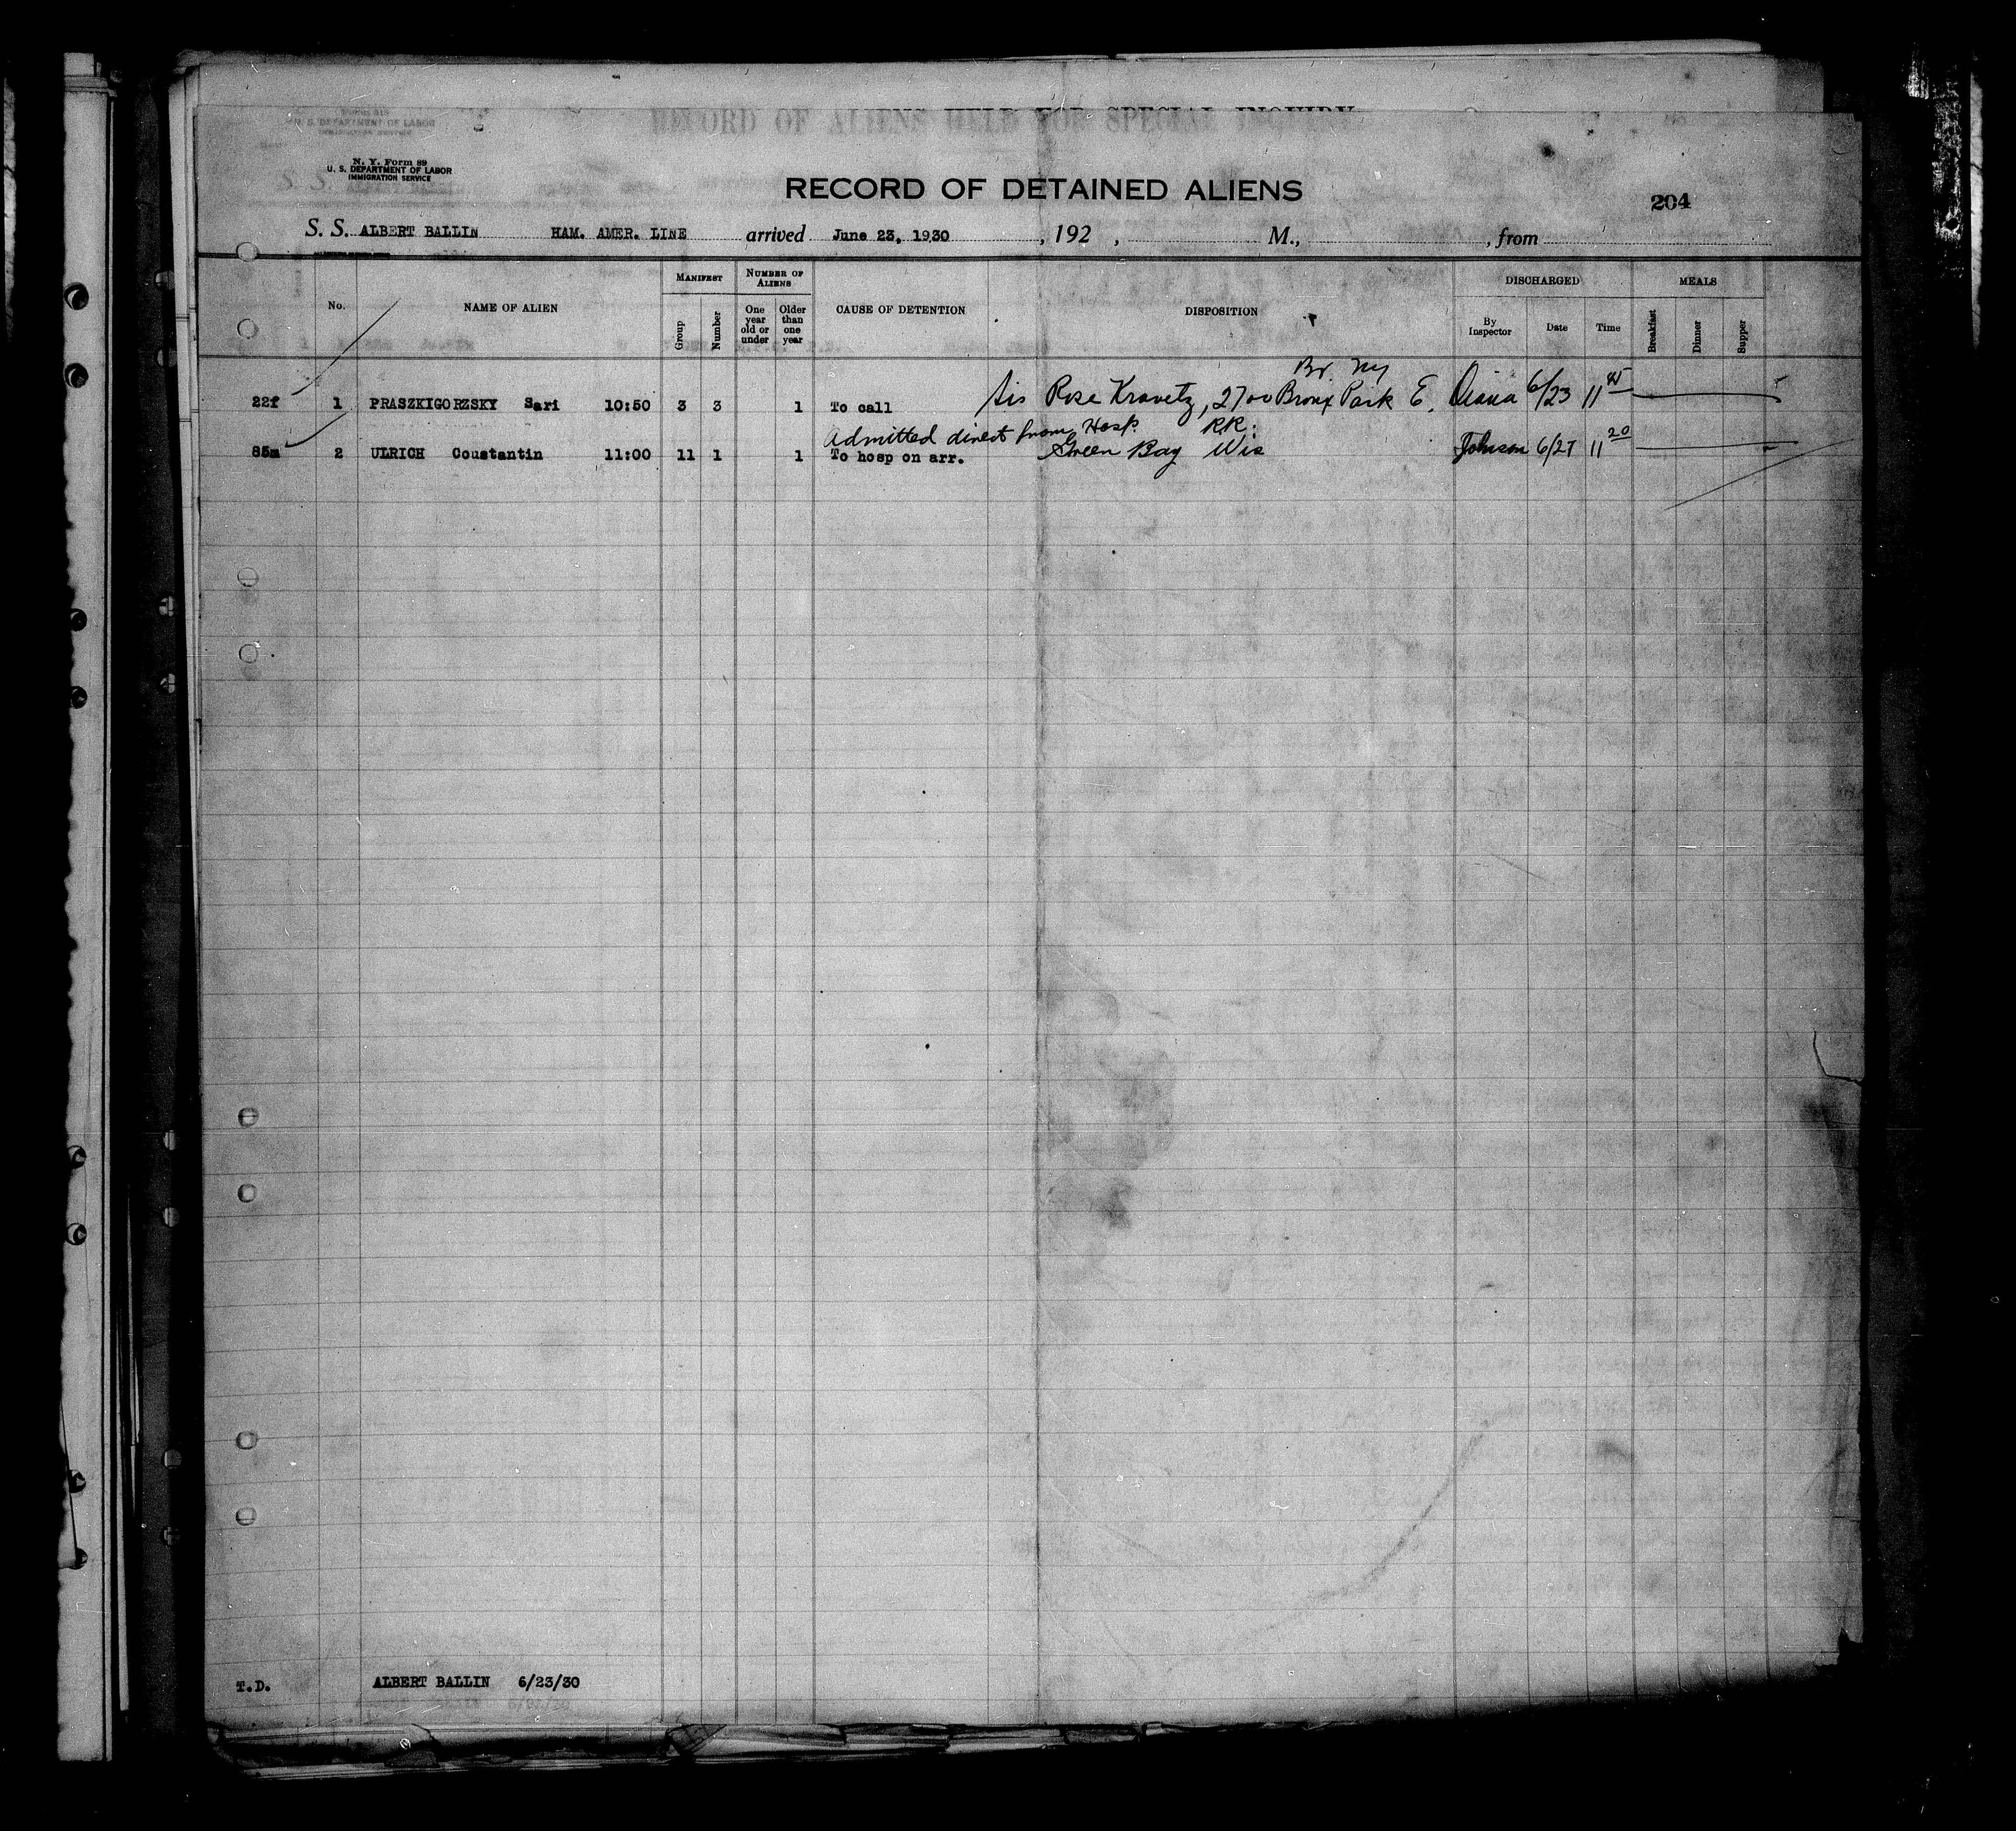 RECORD OF ALIENS HELD FOR SPECIAL INQUIRY
U. S. DEPARTMENT OF LABOR
IMMIGRATION SERVICE
N. Y. Form 89
U. S. DEPARTMENT OF LABOR
IMMIGRATION SERVICE
RECORD OF DETAINED ALIENS
204
S. S. ALBERT BALLIN HAM. AMER. LINE arrived June 23, 1930 , 192 , M., , from
No. NAME OF ALIEN MANIFEST Group Number NUMBER OF ALIENS One year old or under Older than one year CAUSE OF DETENTION DISPOSITION DISCHARGED By Inspector Date Time MEALS Breakfast Dinner Supper
Br. Ny
22f 1 PRASZKIGORZSKY Sari 10:50 3 3 1 To call Sis Rose Kravetz, 2700 Bronx Park E. Diana 6/23 11 45
Admitted direct from Hosp. RR.
85m 2 ULRICH Constantin 11:00 11 1 1 To hosp on arr. Green Bay Wis Johnson 6/27 11 20
T.D. ALBERT BALLIN 6/23/30